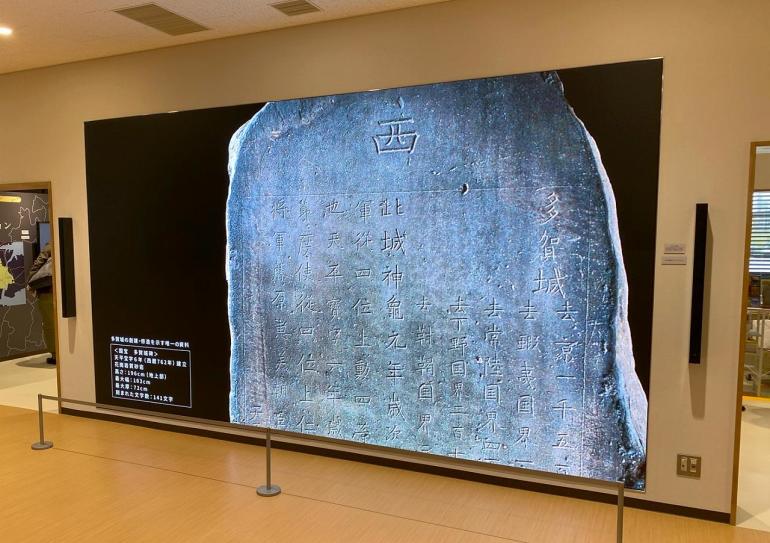 西
多賀城
去京一千五百
去蝦夷國界一
去常陸國界四
去下野國界二百
去靺鞨國界三
此城神龜元年歲次
軍從四位上勳四等
也天平寶字六年歲
節度使從四位上仁
将軍藤原惠美朝臣
多賀城の創建・修造を示す唯一の資料
<国宝 多賀城碑>
天平宝字6年(西暦762年)建立
花崗岩質砂岩
高さ:196cm(地上部)
最大幅:103cm
最大厚:72cm
刻まれた文字数:141文字